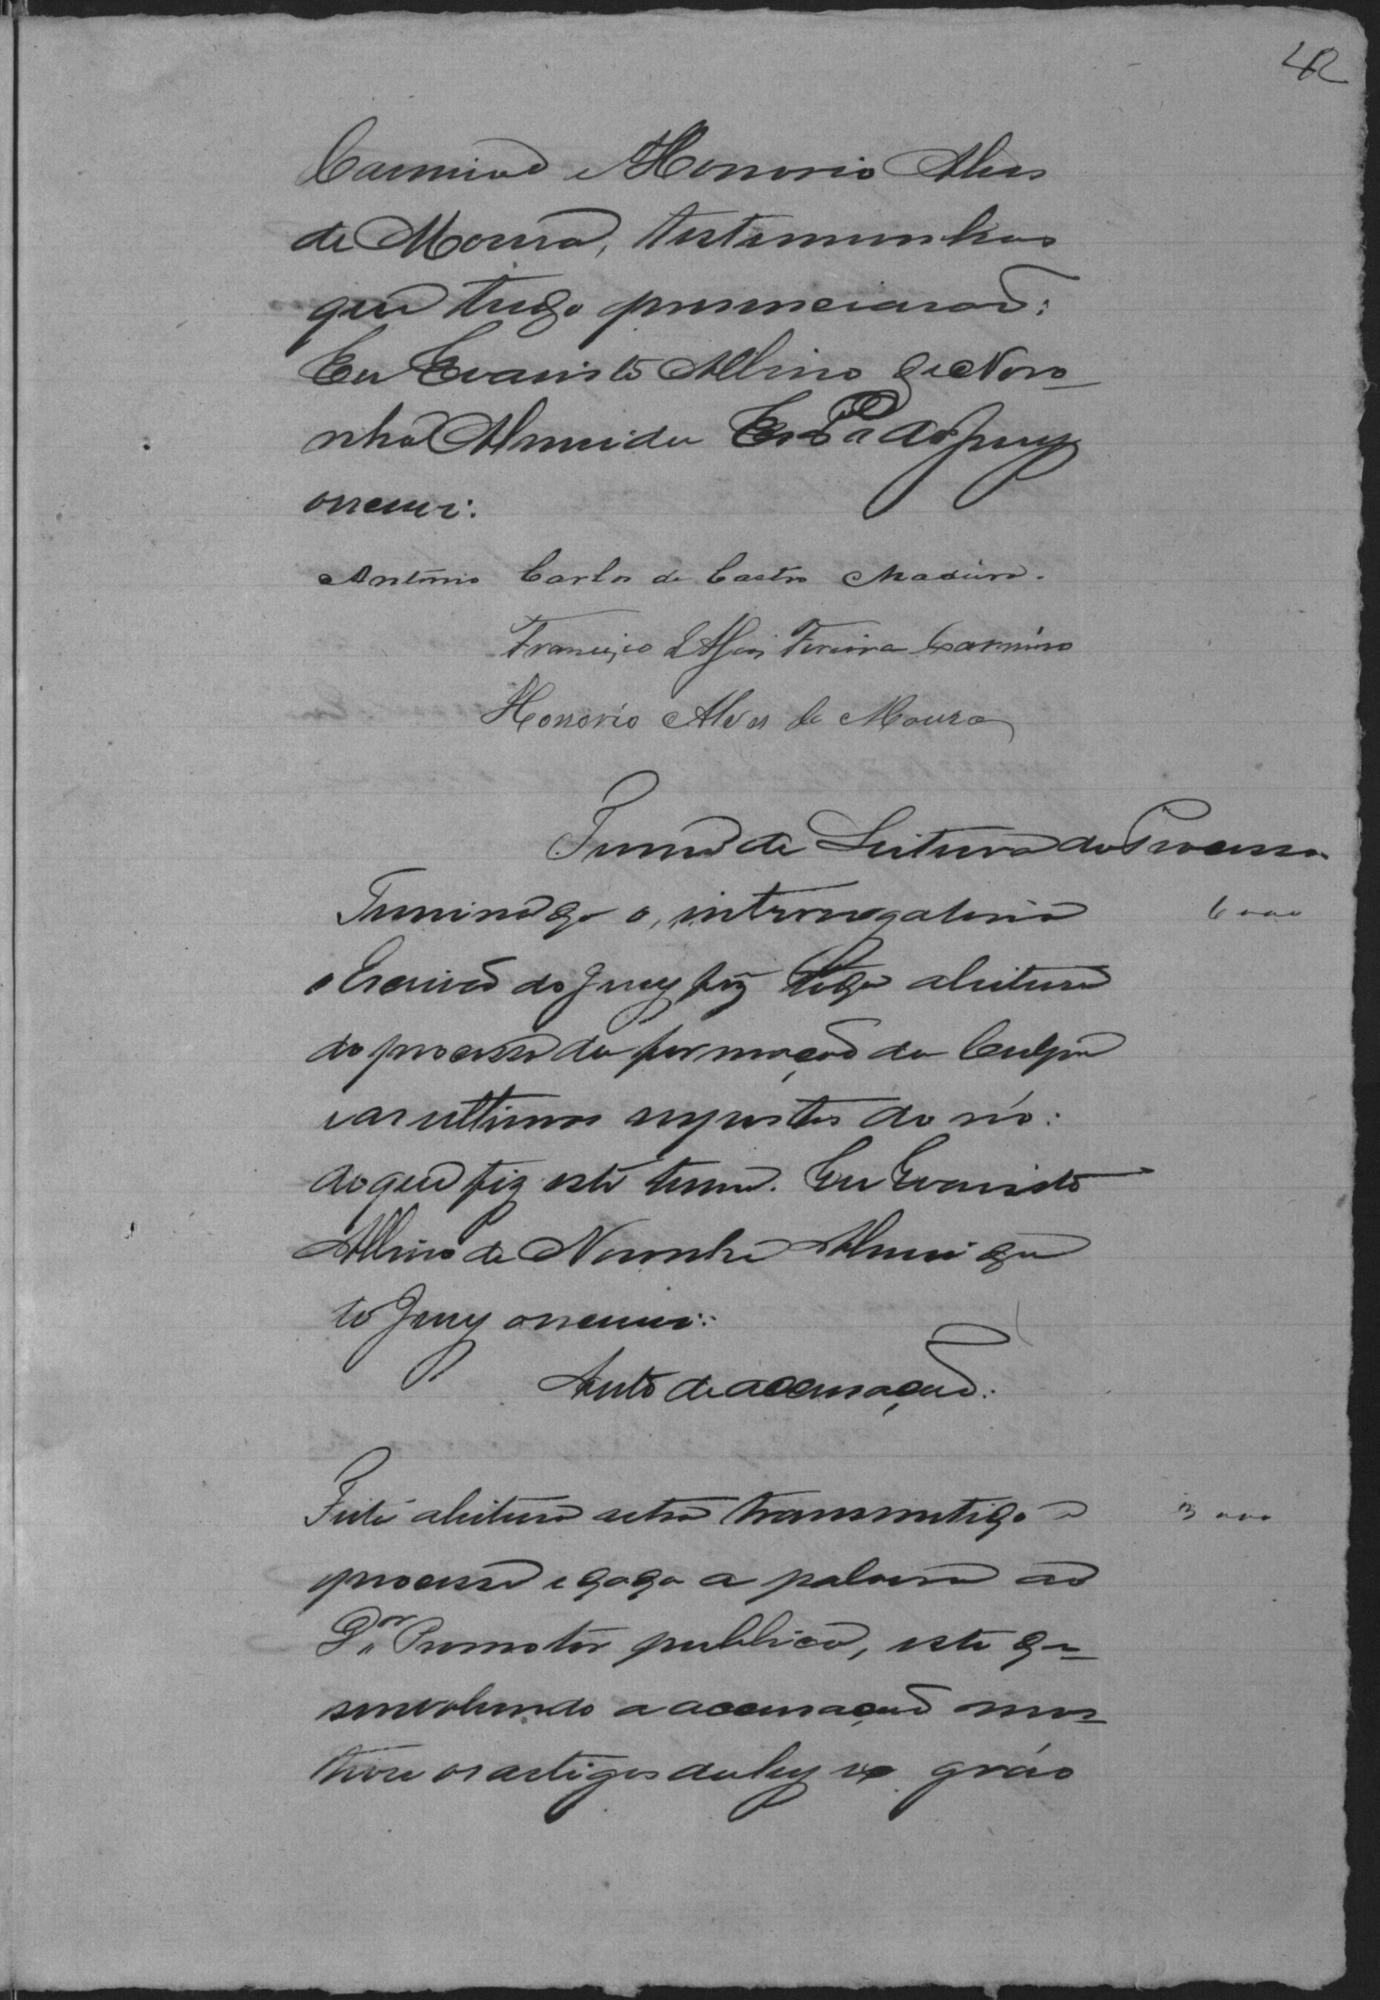 42
Carmino e Honorio Alves
de Moura, testemunhas
que tudo presenciarão:
Eu Evaristo Albino de Noro-
nha Almeida Escrivão do Jury
escrevi:
Antonio Carlos de Castro Madeira.
Francisco d'Assis Ferreira Carmino
Honorio Alves de Moura
Termo de Leitura do Processo
Terminado o interrogatorio
o Escrivão do Jury fiz toda a leitura
do processo da formação da Culpa
e as ultimas respostas do réo:
do que fiz este termo. Eu Evaristo
Albino de Noronha Almeida
do Jury o escrevi:
Auto de accusação:
Feita a leitura retro transmitido o
processo e dada a palavra ao
Dr. Promotor publico, este de-
senvolvendo a accusação mos-
trou os artigos da ley e o gráo